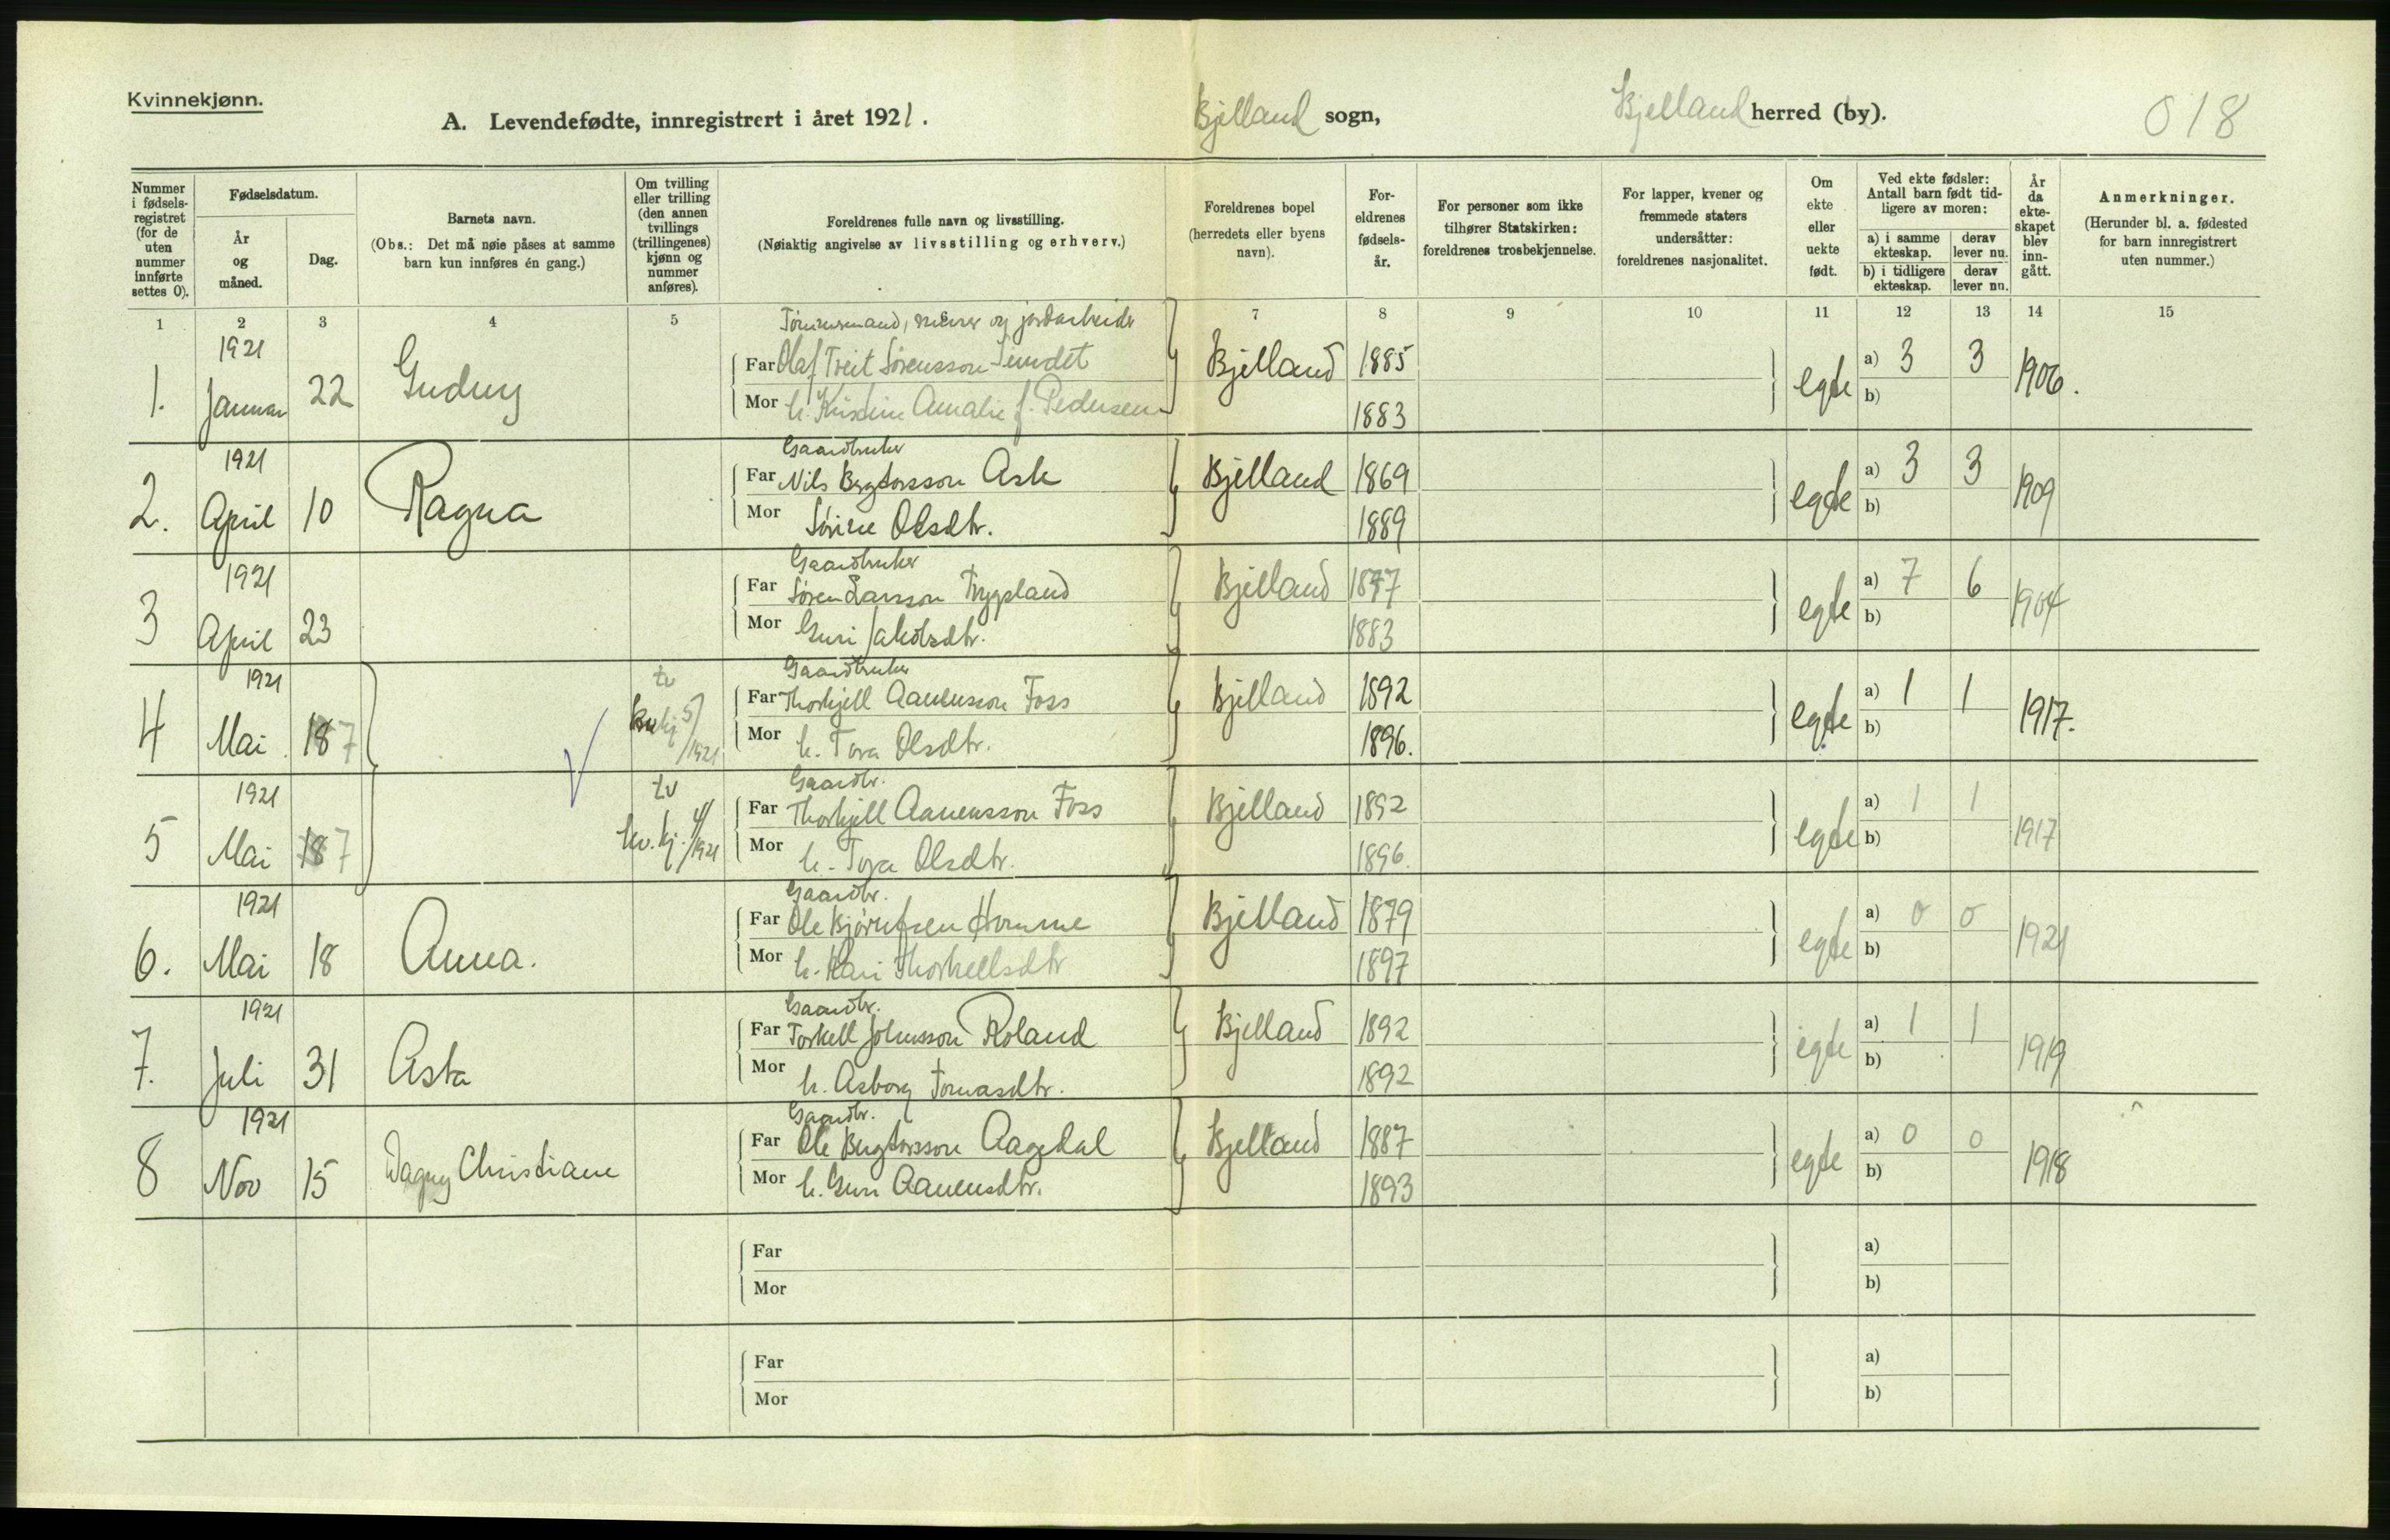 Kvinnekjønn.
A. Levendefødte, innregistrert i året 1921. Bjelland sogn, Bjelland herred (by). 018
Nummer i fødsels-registret (for de uten nummer innførte settes 0).
Fødselsdatum.
År og måned.
Dag.
Barnets navn.
(Obs.: Det må nøie påses at samme barn kun innføres én gang.)
Om tvilling eller trilling (den annen tvillings (trillingenes) kjønn og nummer anføres).
Foreldrenes fulle navn og livsstilling.
(Nøiaktig angivelse av livsstilling og erhverv.)
Foreldrenes bopel (herredets eller byens navn).
For-eldrenes fødsels-år.
For personer som ikke tilhører Statskirken: foreldrenes trosbekjennelse.
For lapper, kvener og fremmede staters undersåtter: foreldrenes nasjonalitet.
Om ekte eller uekte født.
Ved ekte fødsler: Antall barn født tid-ligere av moren:
a) i samme ekteskap. derav lever nu.
b) i tidligere ekteskap. derav lever nu.
År da ekte-skapet blev inn-gått.
Anmerkninger.
(Herunder bl. a. fødested for barn innregistrert uten nummer.)
1 2 3 4 5 7 8 9 10 11 12 13 14 15
Tømmermand, murer og jordarbeider
1. 1921 Januar 22 Gudny
Far Olaf Treit Sørensson Sundet Bjelland 1885 egte a) 3 3 1906.
Mor h. Kristine Amalie f. Pedersen 1883 b)
Gaardbruker
2. 1921 April 10 Ragna
Far Nils Bergtorsson Ask Bjelland 1869 egte a) 3 3 1909
Mor Sørine Olsdtr. 1889 b)
Gaardbruker
3 1921 April 23
Far Søren Larsson Trygsland Bjelland 1877 egte a) 7 6 1904
Mor Guri Jakobsdtr. 1883 b)
Gaardbruker
4 1921 Mai 187 tv kv kj 5/1921
Far Thorkjell Aanensson Foss Bjelland 1892 egte a) 1 1 1917.
Mor h. Tora Olsdtr. 1896. b)
Gaardbr.
5 1921 Mai 187 tv kv. kj. 4/1921
Far Thorkjell Aanensson Foss Bjelland 1892 egte a) 1 1 1917
Mor h. Tora Olsdtr. 1896. b)
Gaardbr.
6. 1921 Mai 18 Anna.
Far Ole Bjørnfsen Homme Bjelland 1879 egte a) 0 0 1921
Mor h. Kari Thorkellsdtr 1897 b)
Gaardbr.
7. 1921 Juli 31 Asta
Far Torkell Johnsson Røland Bjelland 1892 egte a) 1 1 1919
Mor h. Asborg Tomasdtr. 1892 b)
Gaardbr.
8 1921 Nov 15 Dagny Christiane
Far Ole Bergtorsson Aagedal Bjelland 1887 egte a) 0 0 1918
Mor h. Guri Aanensdtr. 1893 b)
Far a)
Mor b)
Far a)
Mor b)